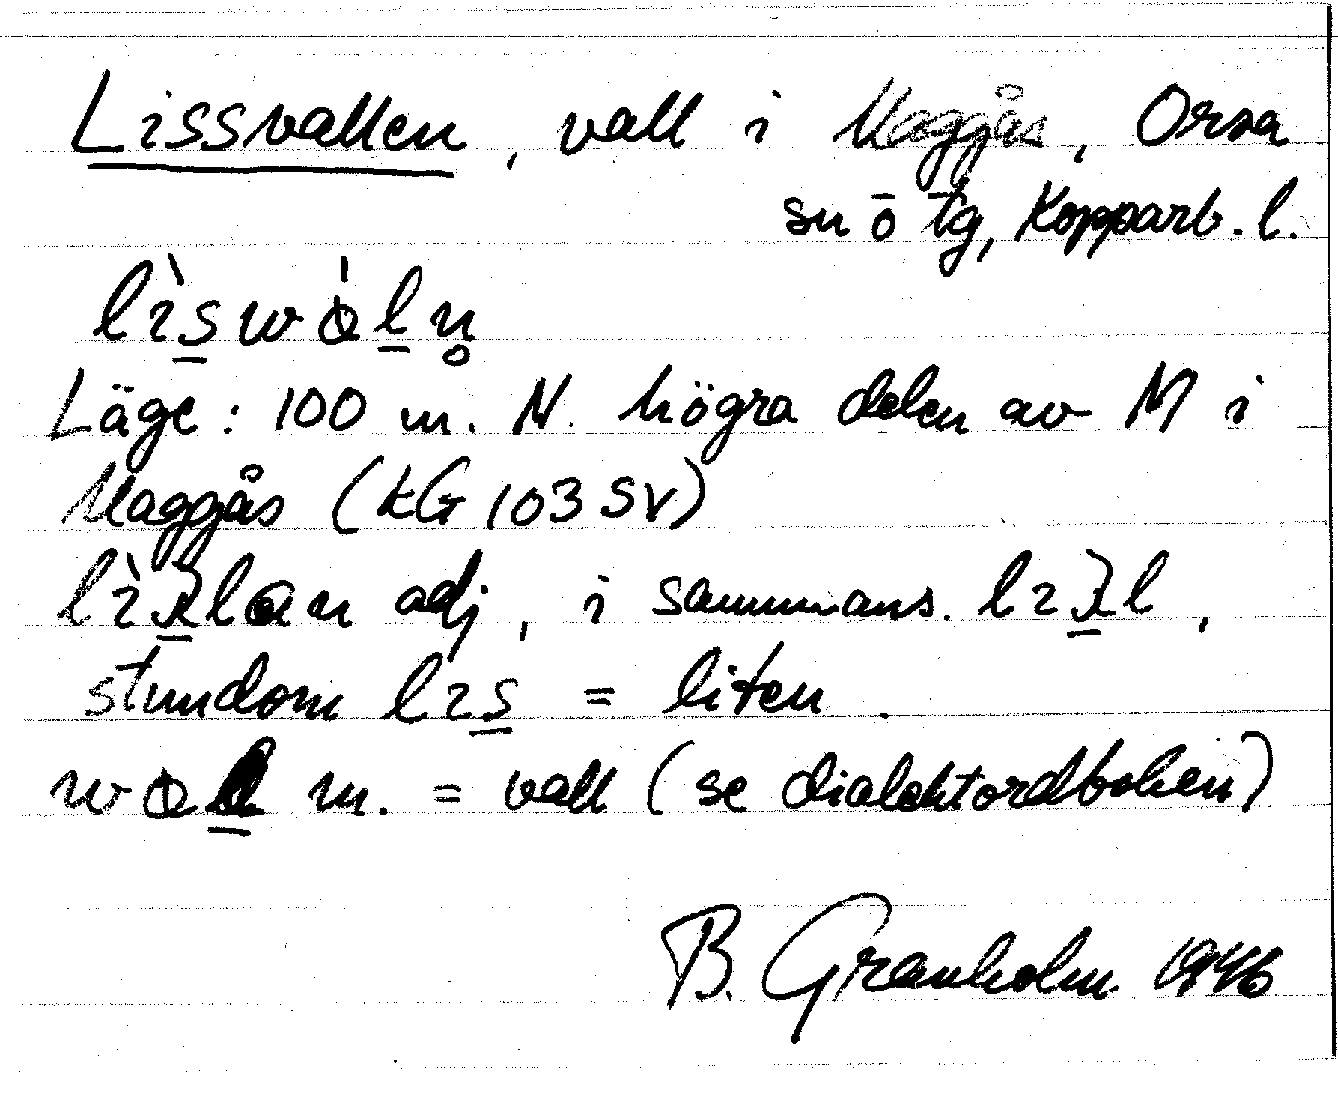 Lissvallen, vall i Maggås, Orsa
sn o tg, Kopparb. l.
Läge: 100 m. N. högra delen av M i
Maggås (kG 103 SV)
adj, i sammans.
stundom = liten.
m. = vall (se dialektordboken)
B. Granholm 1946